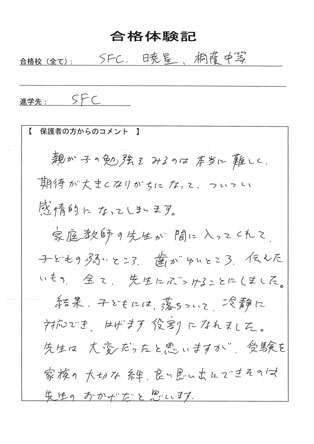 合格体験記
合格校(全て): SFC. 暁星、桐蔭中等
進学先: SFC
【 保護者の方からのコメント 】
親が子の勉強をみるのは本当に難しく、
期待が大きくなりがちになって、ついつい
感情的になってしまいます。
家庭教師の先生が間に入ってくれて、
子どもの弱いところ、歯がゆいところ、伝えたい
もの、全て、先生にぶつけることにしました。
結果、子どもには、落ちついて、冷静に
対応でき、はげます役割になれました。
先生は大変だったと思いますが、受験を
家族の大切な絆、良い思い出にできたのは
先生のおかげだと思います。